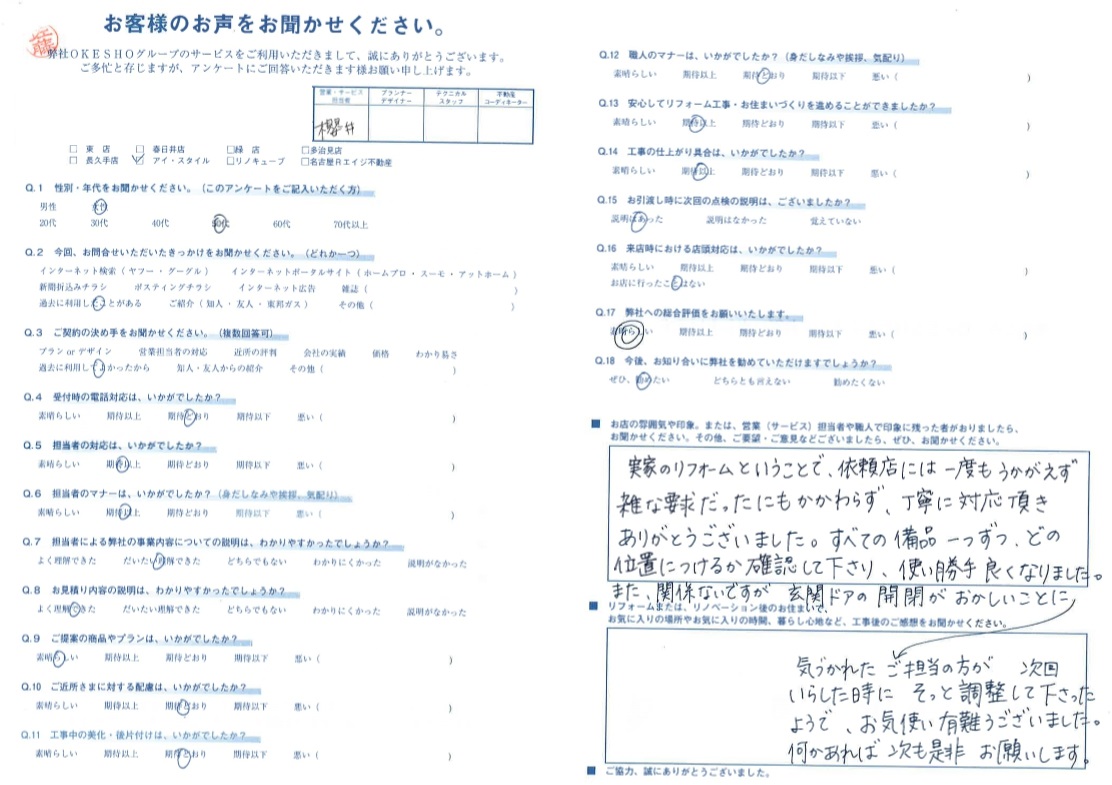 お客様のお声をお聞かせください。
弊社OKESHOグループのサービスをご利用いただきまして、誠にありがとうございます。
ご多忙と存じますが、アンケートにご回答いただきます様お願い申し上げます。
営業・サービス担当者 プランナーデザイナー テクニカルスタッフ 不動産コーディネーター
櫻井
□ 東 店 □ 春日井店 □緑 店 □多治見店
□ 長久手店 ☑ アイ・スタイル □リノキューブ □名古屋Rエイジ不動産
Q.1 性別・年代をお聞かせください。（このアンケートをご記入いただく方）
男性 女性
20代 30代 40代 50代 60代 70代以上
Q.2 今回、お問合せいただいたきっかけをお聞かせください。（どれか一つ）
インターネット検索（ ヤフー・グーグル ） インターネットポータルサイト（ ホームプロ・スーモ・アットホーム ）
新聞折込みチラシ ポスティングチラシ インターネット広告 雑誌（ ）
過去に利用したことがある ご紹介（ 知人 ・ 友人 ・ 東邦ガス ） その他（ ）
Q.3 ご契約の決め手をお聞かせください。（複数回答可）
プラン or デザイン 営業担当者の対応 近所の評判 会社の実績 価格 わかり易さ
過去に利用してよかったから 知人・友人からの紹介 その他（ ）
Q.4 受付時の電話対応は、いかがでしたか？
素晴らしい 期待以上 期待どおり 期待以下 悪い（ ）
Q.5 担当者の対応は、いかがでしたか？
素晴らしい 期待以上 期待どおり 期待以下 悪い（ ）
Q.6 担当者のマナーは、いかがでしたか？（身だしなみや挨拶、気配り）
素晴らしい 期待以上 期待どおり 期待以下 悪い（ ）
Q.7 担当者による弊社の事業内容についての説明は、わかりやすかったでしょうか？
よく理解できた だいたい理解できた どちらでもない わかりにくかった 説明がなかった
Q.8 お見積り内容の説明は、わかりやすかったでしょうか？
よく理解できた だいたい理解できた どちらでもない わかりにくかった 説明がなかった
Q.9 ご提案の商品やプランは、いかがでしたか？
素晴らしい 期待以上 期待どおり 期待以下 悪い（ ）
Q.10 ご近所さまに対する配慮は、いかがでしたか？
素晴らしい 期待以上 期待どおり 期待以下 悪い（ ）
Q.11 工事中の美化・後片付けは、いかがでしたか？
素晴らしい 期待以上 期待どおり 期待以下 悪い（ ）
Q.12 職人のマナーは、いかがでしたか？（身だしなみや挨拶、気配り）
素晴らしい 期待以上 期待どおり 期待以下 悪い（ ）
Q.13 安心してリフォーム工事・お住まいづくりを進めることができましたか？
素晴らしい 期待以上 期待どおり 期待以下 悪い（ ）
Q.14 工事の仕上がり具合は、いかがでしたか？
素晴らしい 期待以上 期待どおり 期待以下 悪い（ ）
Q.15 お引渡し時に次回の点検の説明は、ございましたか？
説明はあった 説明はなかった 覚えていない
Q.16 来店時における店頭対応は、いかがでしたか？
素晴らしい 期待以上 期待どおり 期待以下 悪い（ ）
お店に行ったことはない
Q.17 弊社への総合評価をお願いいたします。
素晴らしい 期待以上 期待どおり 期待以下 悪い（ ）
Q.18 今後、お知り合いに弊社を勧めていただけますでしょうか？
ぜひ、勧めたい どちらとも言えない 勧めたくない
■ お店の雰囲気や印象。または、営業（サービス）担当者や職人で印象に残った者がおりましたら、
お聞かせください。その他、ご要望・ご意見などございましたら、ぜひ、お聞かせください。
実家のリフォームということで、依頼店には一度もうかがえず
雑な要求だったにもかかわらず、丁寧に対応頂き
ありがとうございました。すべての備品一つずつ、どの
位置につけるか確認して下さり、使い勝手良くなりました。
また、関係ないですが 玄関ドアの開閉がおかしいことに
■ リフォームまたは、リノベーション後のお住まいで、
お気に入りの場所やお気に入りの時間、暮らし心地など、工事後のご感想をお聞かせください。
気づかれた ご担当の方が 次回
いらした時に そっと調整して下さった
ようで、お気使い有難うございました。
何かあれば 次も是非 お願いします。
■ ご協力、誠にありがとうございました。